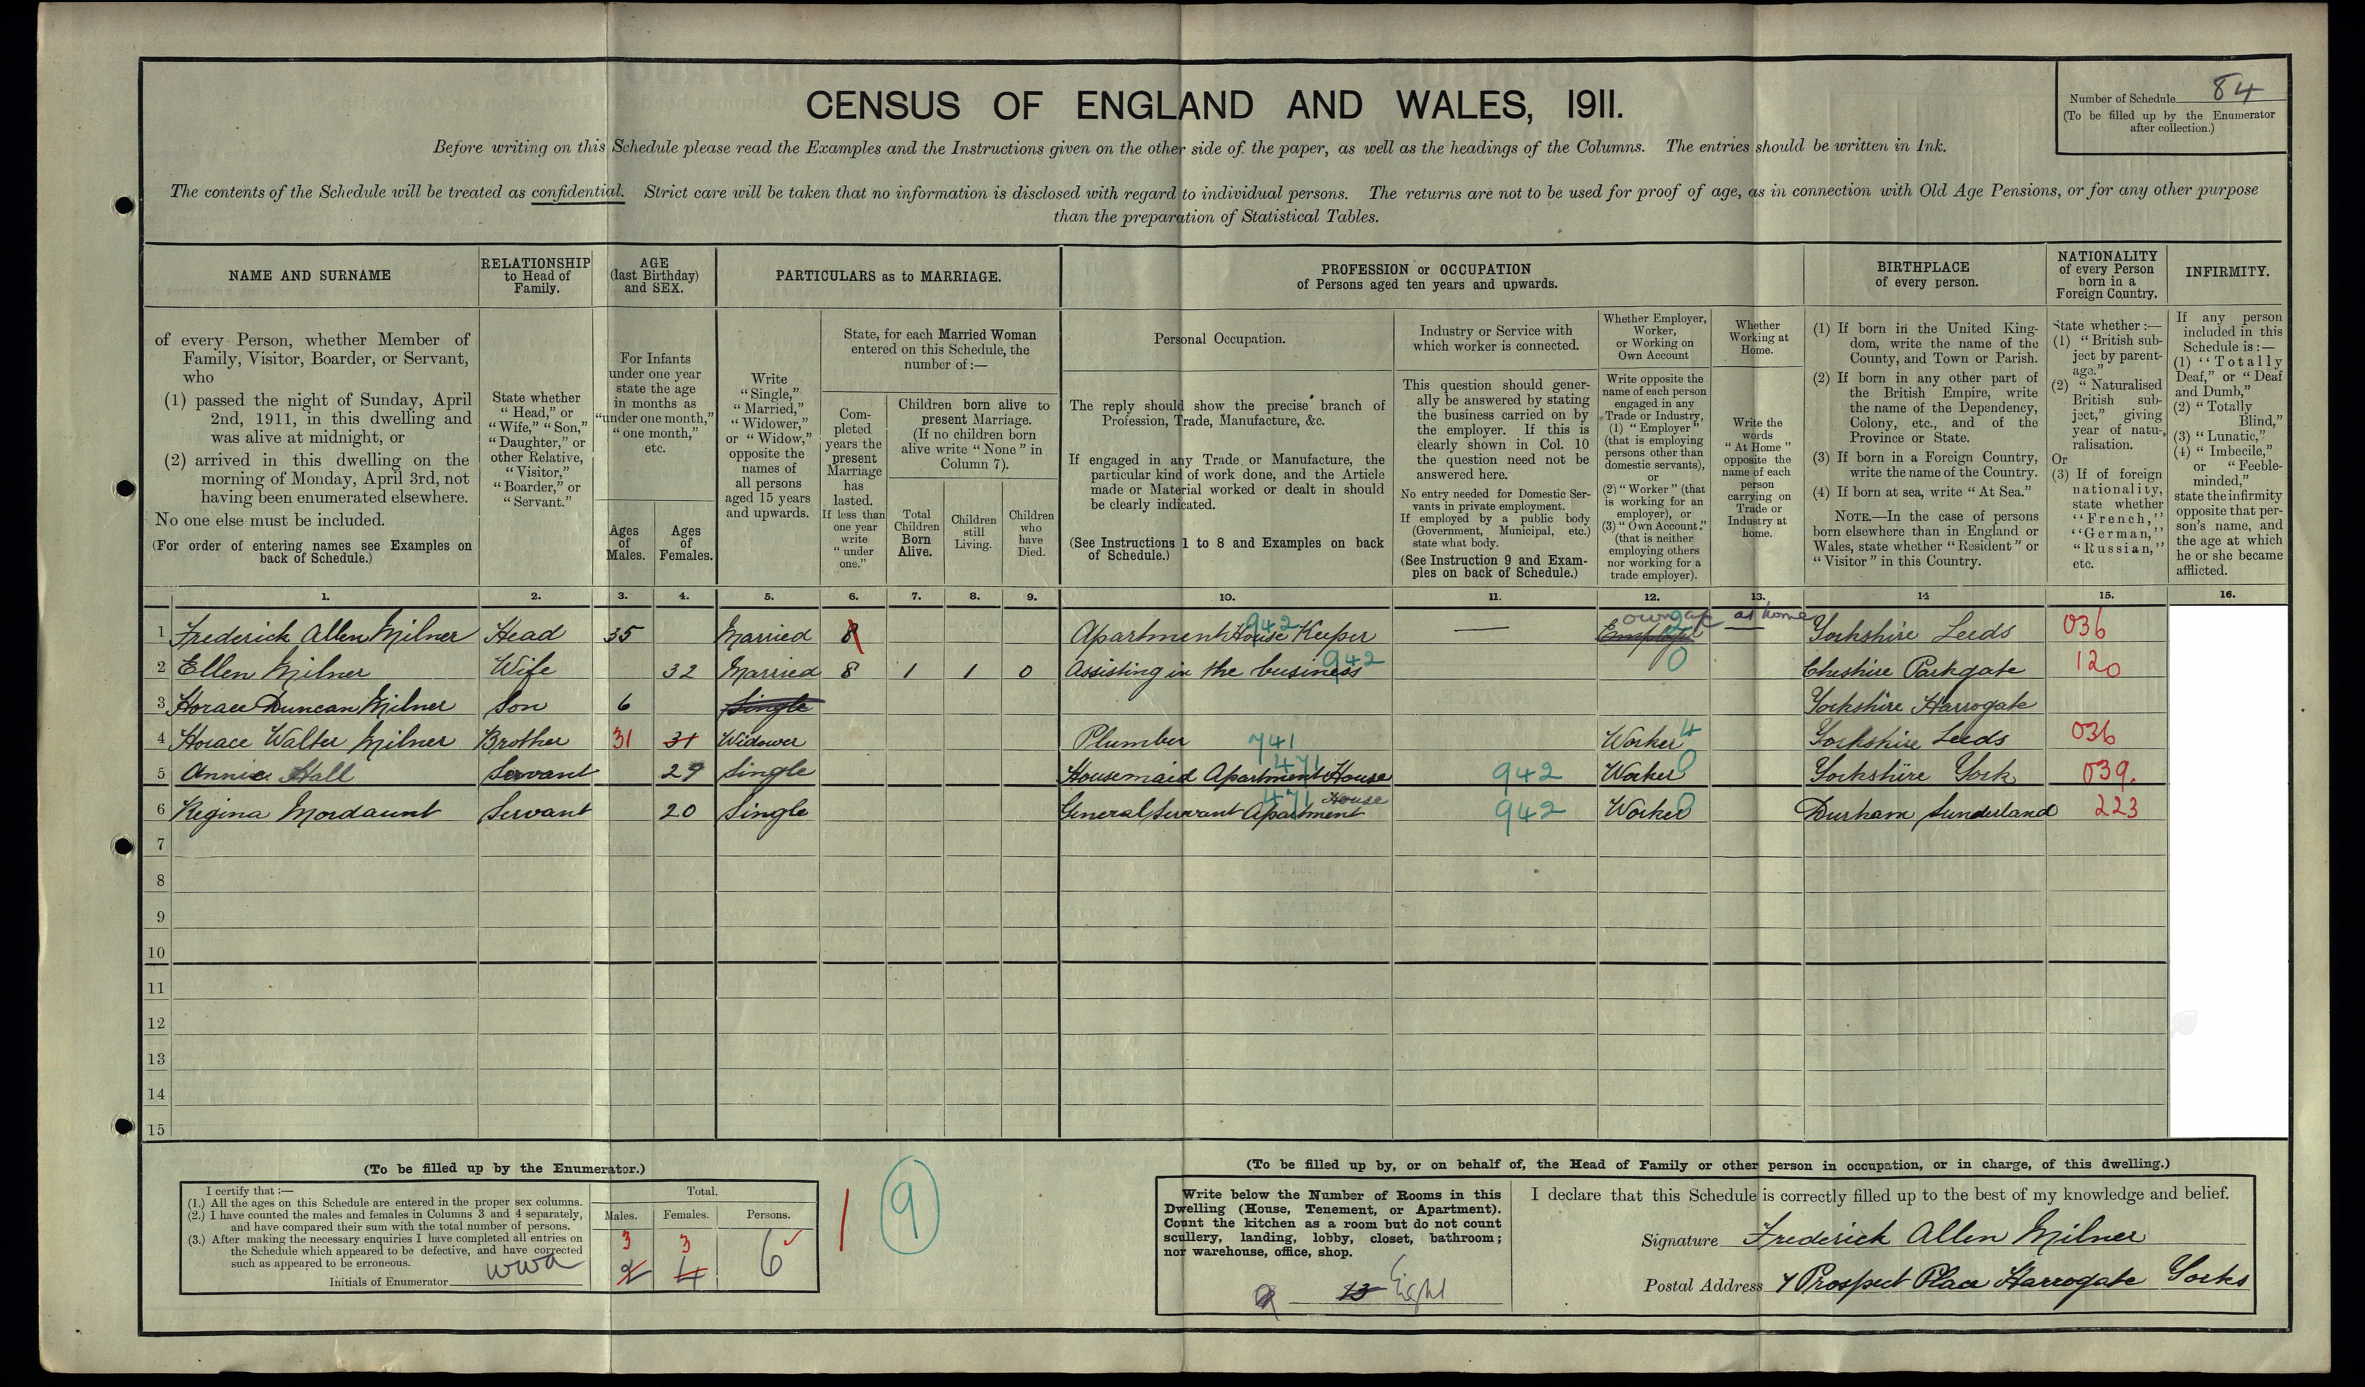 CENSUS OF ENGLAND AND WALES, 1911.
Number of Schedule 84
(To be filled up by the Enumerator
after collection.)
Before writing on this Schedule please read the Examples and the Instructions given on the other side of the paper, as well as the headings of the Columns. The entries should be written in Ink.
The contents of the Schedule will be treated as confidential. Strict care will be taken that no information is disclosed with regard to individual persons. The returns are not to be used for proof of age, as in connection with Old Age Pensions, or for any other purpose
than the preparation of Statistical Tables.
NAME AND SURNAME
RELATIONSHIP
to Head of
Family.
AGE
(last Birthday)
and SEX.
PARTICULARS as to MARRIAGE.
PROFESSION or OCCUPATION
of Persons aged ten years and upwards.
BIRTHPLACE
of every person.
NATIONALITY
of every Person
born in a
Foreign Country.
INFIRMITY.
of every Person, whether Member of
Family, Visitor, Boarder, or Servant,
who
(1) passed the night of Sunday, April
2nd, 1911, in this dwelling and
was alive at midnight, or
(2) arrived in this dwelling on the
morning of Monday, April 3rd, not
having been enumerated elsewhere.
No one else must be included.
(For order of entering names see Examples on
back of Schedule.)
State whether
"Head," or
"Wife," "Son,"
"Daughter," or
other Relative,
"Visitor,"
"Boarder," or
"Servant."
For Infants
under one year
state the age
in months as
"under one month,"
"one month,"
etc.
Ages
of
Males.
Ages
of
Females.
Write
"Single,"
"Married,"
"Widower,"
or "Widow,"
opposite the
names of
all persons
aged 15 years
and upwards.
State, for each Married Woman
entered on this Schedule, the
number of:—
Com-
pleted
years the
present
Marriage
has
lasted.
If less than
one year
write
"under
one."
Children born alive to
present Marriage.
(If no children born
alive write "None" in
Column 7).
Total
Children
Born
Alive.
Children
still
Living.
Children
who
have
Died.
Personal Occupation.
The reply should show the precise branch of
Profession, Trade, Manufacture, &c.
If engaged in any Trade or Manufacture, the
particular kind of work done, and the Article
made or Material worked or dealt in should
be clearly indicated.
(See Instructions 1 to 8 and Examples on back
of Schedule.)
Industry or Service with
which worker is connected.
This question should gener-
ally be answered by stating
the business carried on by
the employer. If this is
clearly shown in Col. 10
the question need not be
answered here.
No entry needed for Domestic Ser-
vants in private employment.
If employed by a public body
(Government, Municipal, etc.)
state what body.
(See Instruction 9 and Exam-
ples on back of Schedule.)
Whether Employer,
Worker,
or Working on
Own Account
Write opposite the
name of each person
engaged in any
Trade or Industry,
(1) "Employer"
(that is employing
persons other than
domestic servants),
or
(2) "Worker" (that
is working for an
employer), or
(3) "Own Account"
(that is neither
employing others
nor working for a
trade employer).
Whether
Working at
Home.
Write the
words
"At Home"
opposite the
name of each
person
carrying on
Trade or
Industry at
home.
(1) If born in the United King-
dom, write the name of the
County, and Town or Parish.
(2) If born in any other part of
the British Empire, write
the name of the Dependency,
Colony, etc., and of the
Province or State.
(3) If born in a Foreign Country,
write the name of the Country.
(4) If born at sea, write "At Sea."
NOTE.—In the case of persons
born elsewhere than in England or
Wales, state whether "Resident" or
"Visitor" in this Country.
State whether:—
(1) "British sub-
ject by parent-
age."
(2) "Naturalised
British sub-
ject," giving
year of natu-
ralisation.
Or
(3) If of foreign
nationality,
state whether
"French,"
"German,"
"Russian,"
etc.
If any person
included in this
Schedule is:—
(1) "Totally
Deaf," or "Deaf
and Dumb,"
(2) "Totally
Blind,"
(3) "Lunatic,"
(4) "Imbecile,"
or "Feeble-
minded,"
state the infirmity
opposite that per-
son's name, and
the age at which
he or she became
afflicted.
1. 2. 3. 4. 5. 6. 7. 8. 9. 10. 11. 12. 13. 14 15. 16.
own a/c at home
1 Frederick Allen Milner Head 35 Married 8 Apartment House Keeper 942 — Employer — Yorkshire Leeds 036
2 Ellen Milner Wife 32 Married 8 1 1 0 Assisting in the business 942 0 Cheshire Parkgate 120
3 Horace Duncan Milner Son 6 Single Yorkshire Harrogate
4 Horace Walter Milner Brother 31 31 Widower Plumber 741 Worker 4 Yorkshire Leeds 036
5 Annie Hall Servant 29 Single Housemaid Apartment House 471 942 Worker 0 Yorkshire York 039.
6 Regina Mordaunt Servant 20 Single General Servant Apartment House 471 942 Worker 0 Durham Sunderland 223
7
8
9
10
11
12
13
14
15
(To be filled up by the Enumerator.)
I certify that:—
(1.) All the ages on this Schedule are entered in the proper sex columns.
(2.) I have counted the males and females in Columns 3 and 4 separately,
and have compared their sum with the total number of persons.
(3.) After making the necessary enquiries I have completed all entries on
the Schedule which appeared to be defective, and have corrected
such as appeared to be erroneous.
Initials of Enumerator WWA
Total.
Males. Females. Persons.
3 3
2 4 6
1 9
(To be filled up by, or on behalf of, the Head of Family or other person in occupation, or in charge, of this dwelling.)
Write below the Number of Rooms in this
Dwelling (House, Tenement, or Apartment).
Count the kitchen as a room but do not count
scullery, landing, lobby, closet, bathroom;
nor warehouse, office, shop.
13 Eight
I declare that this Schedule is correctly filled up to the best of my knowledge and belief.
Signature Frederick Allen Milner
Postal Address 4 Prospect Place Harrogate Yorks